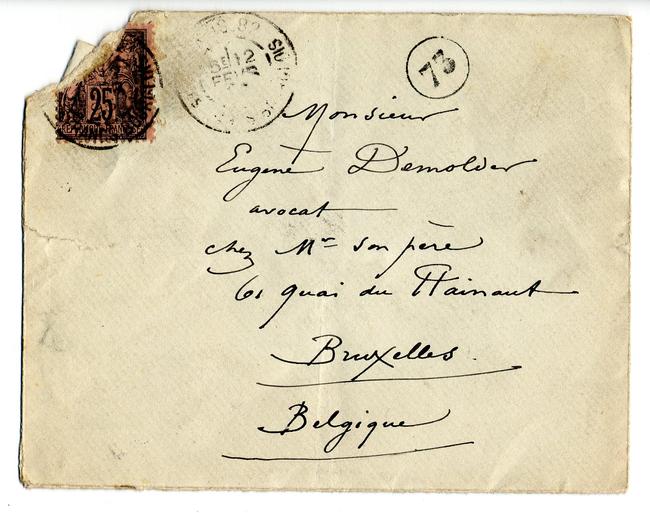 25
73
Monsieur
Eugène Demolder
avocat
chez Mr son père
61 quai du Hainaut
Bruxelles.
Belgique